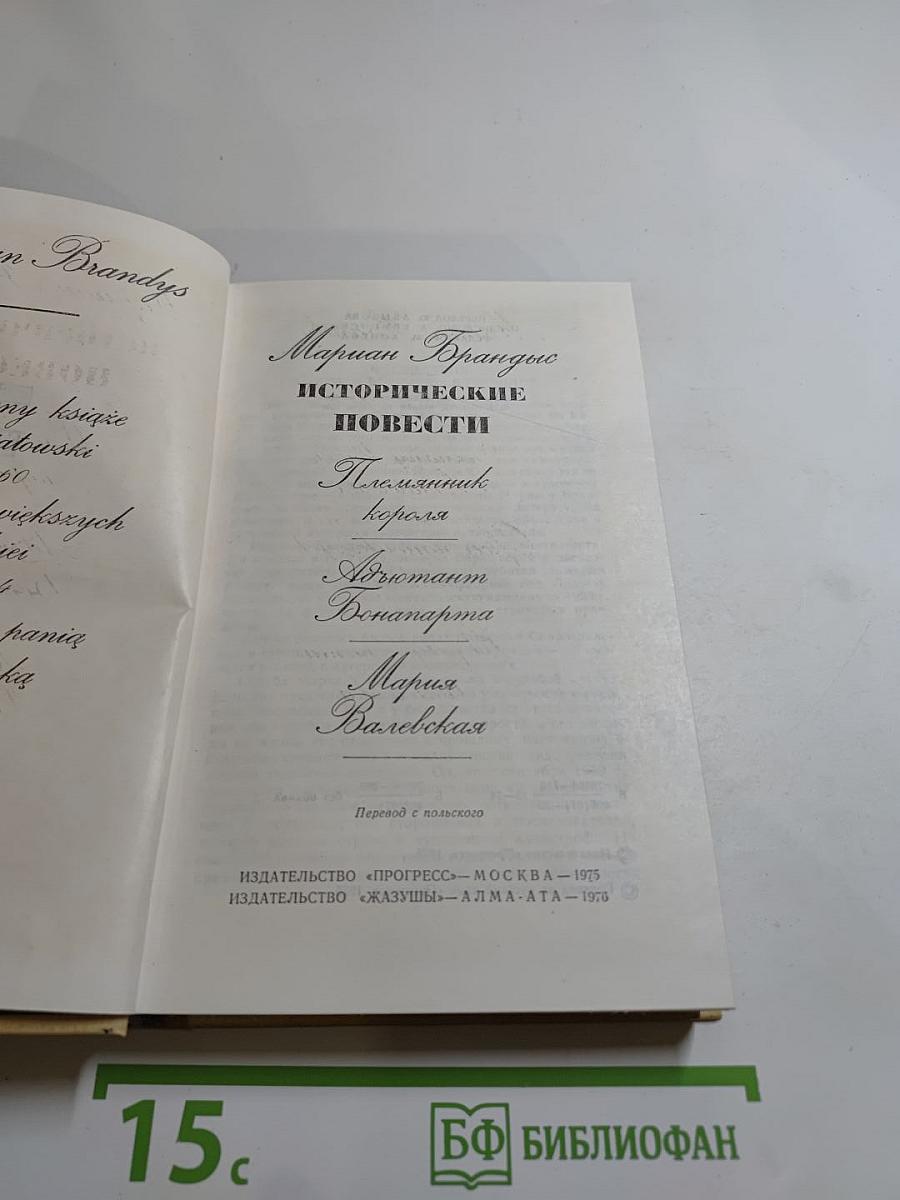 Brandys
książe
większych
panią
Мариан Брандыс
ИСТОРИЧЕСКИЕ
ПОВЕСТИ
Племянник
короля
Адъютант
Бонапарта
Мария
Валевская
Перевод с польского
ИЗДАТЕЛЬСТВО «ПРОГРЕСС» — МОСКВА — 1975
ИЗДАТЕЛЬСТВО «ЖАЗУШЫ» — АЛМА-АТА — 1976
15 см
БФ БИБЛИОФАН